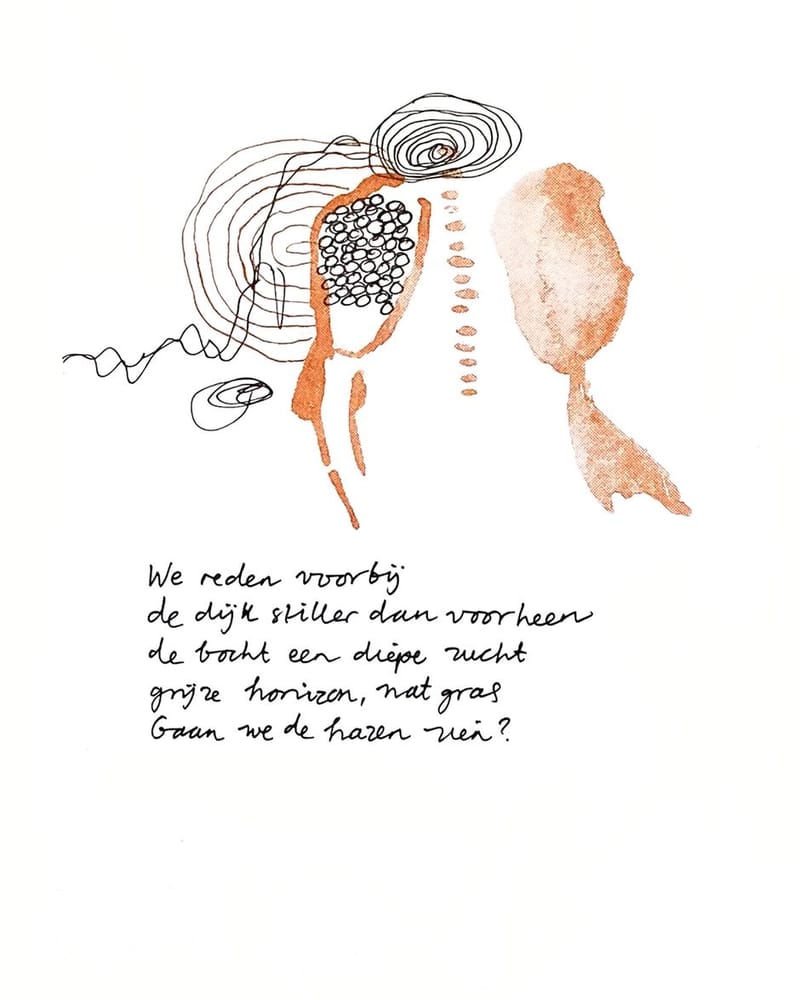 We reden voorbij
de dijk stiller dan voorheen
de bocht een diepe zucht
grijze horizon, nat gras
Gaan we de hazen zien?